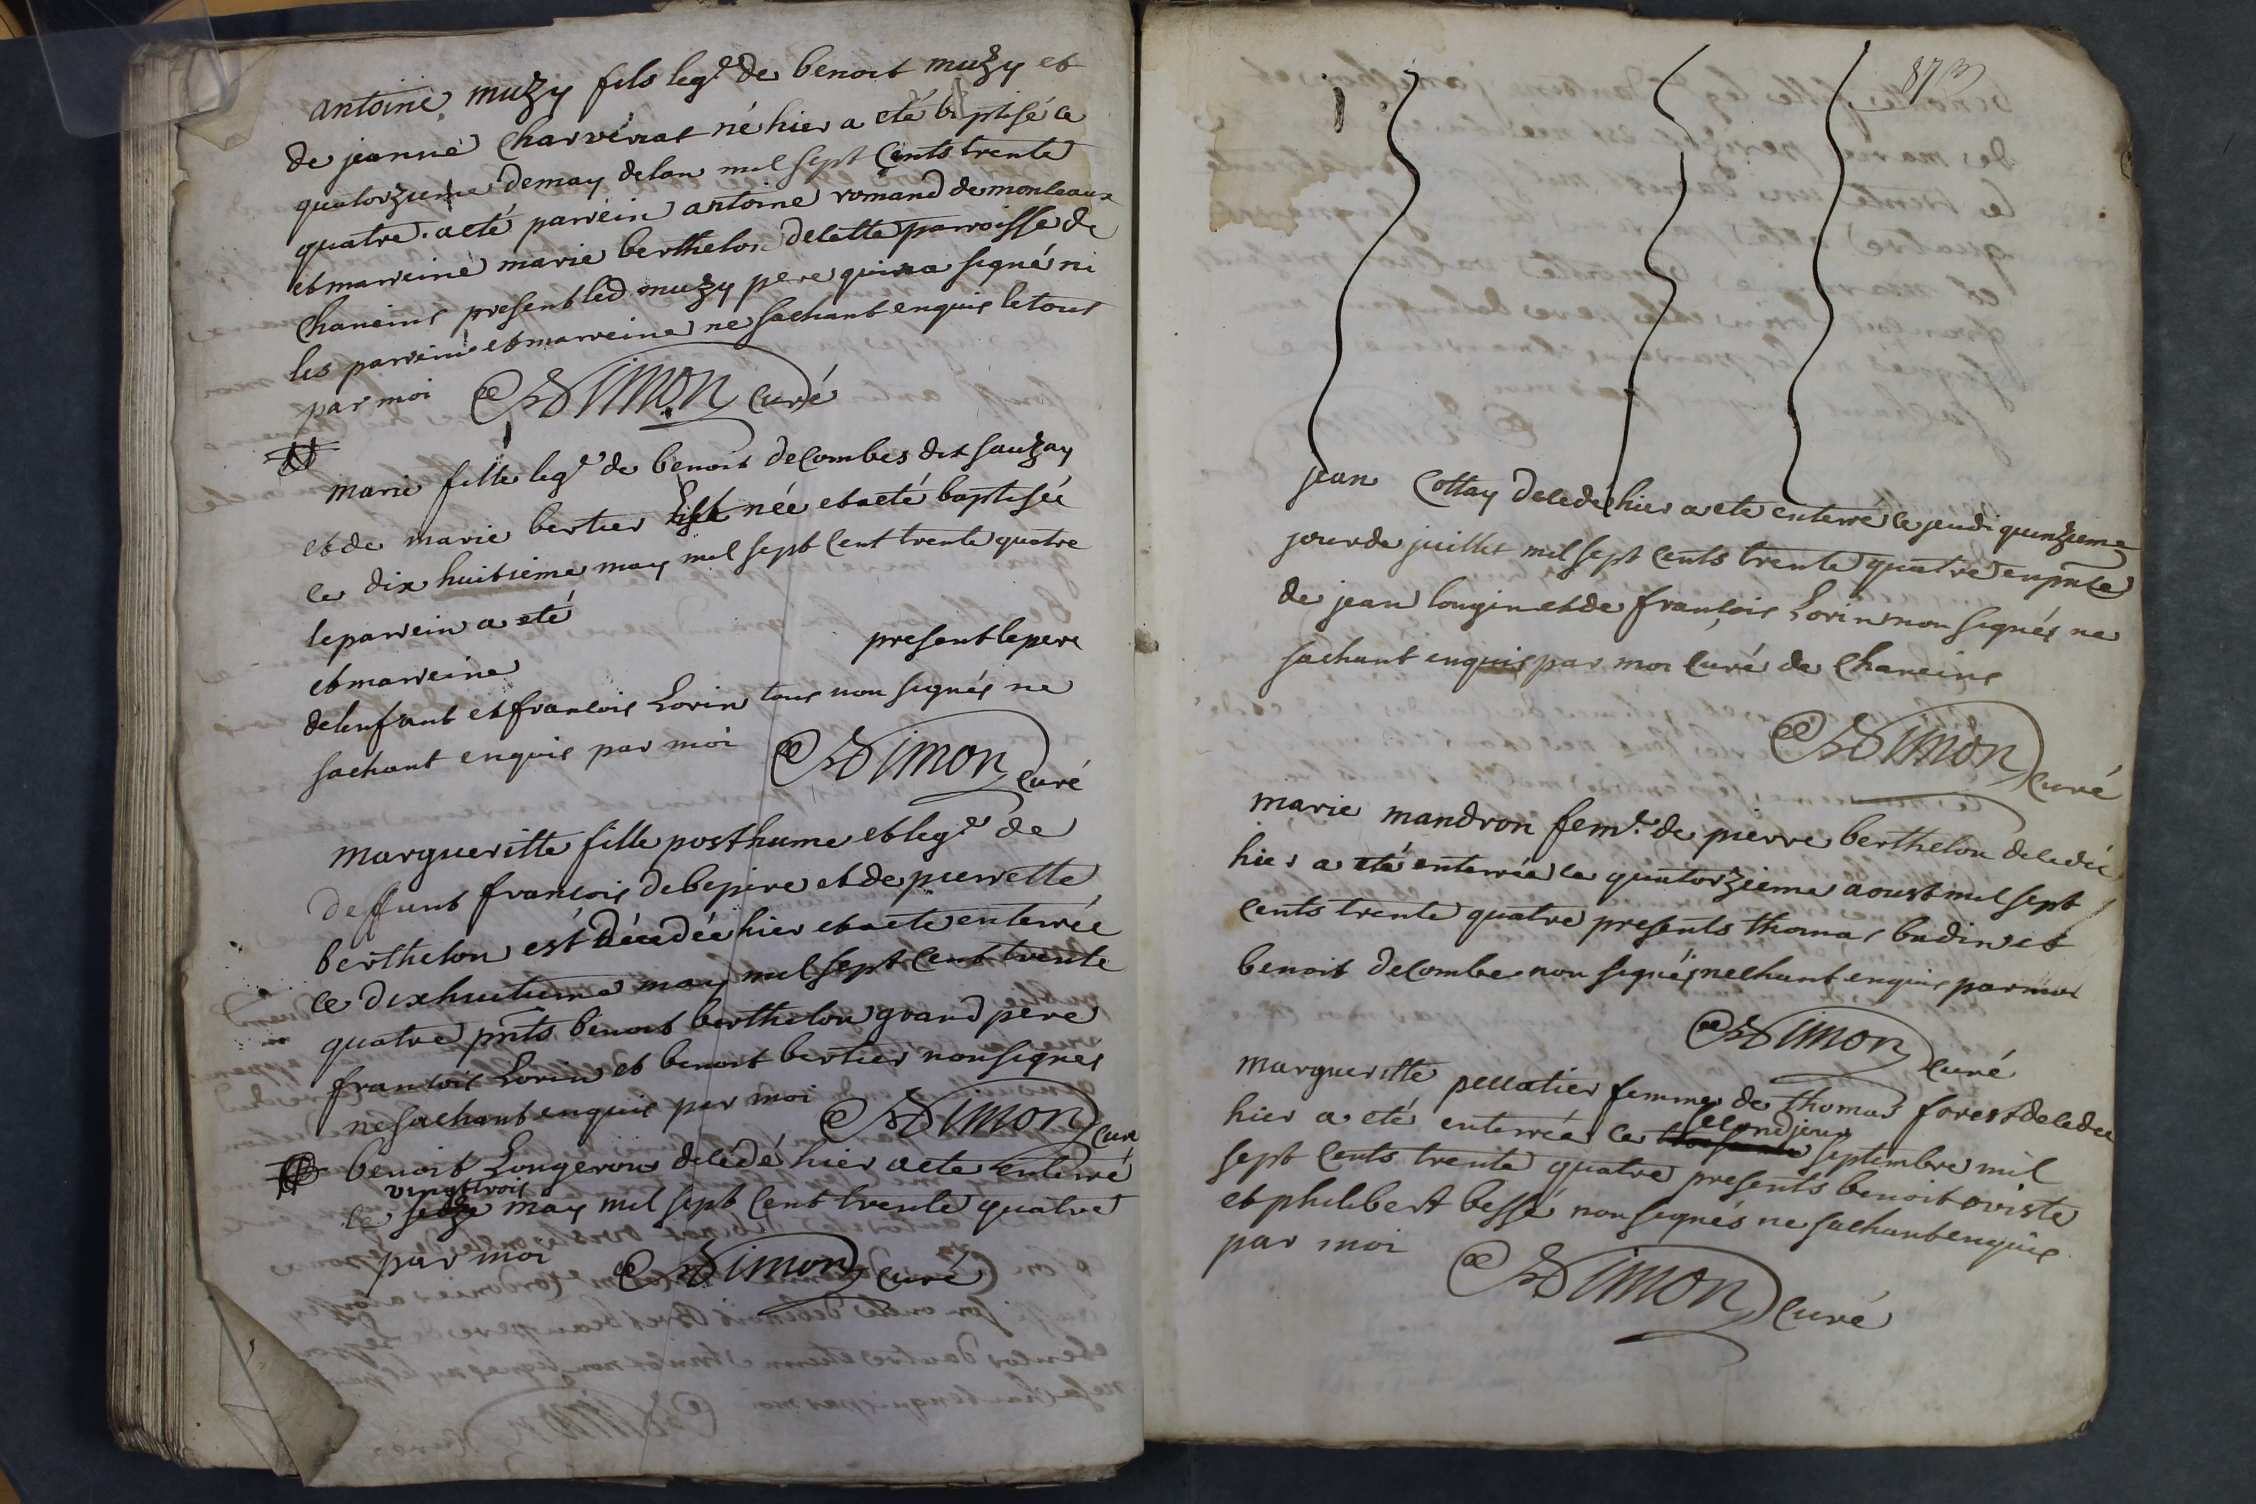 antoine muzy fils leg.e de benoit muzy et
de jeanne Charvériat né hier a eté baptisé ce
quatorzieme de may de lan mil sept Cents trente
quatre. a eté parrein antoine romand de monteaux
et marreine marie berthelon de cette parroisse de
Chaneins present led muzy pere qui n'a signé ni
les parrein et marreine ne sachant enquis le tout
par moi Simon Curé
marie fille leg.e de benoit deCombes dit sauzay
et de marie bertier née et a eté baptisée
ce dix huitieme may mil sept Cent trente quatre
le parrein a eté
et marreine present le pere
de lenfant et francois Lorin tous non signés ne
sachant enquis par moi Simon Curé
margueritte fille posthume et leg.e de
deffunt francois debepire et de pierrette
berthelon est décedée hier et a ete enterrée
ce dixhuitieme may mil sept Cent trente
quatre pnts benoit berthelon grand pere
francois Lorin et benoit bertier non signes
ne sachant enquis par moi Simon Cure
benoit Longeron décédé hier a ete enterré
vingt trois
le seize may mil sept Cent trente quatre
par moi Simon Curé
87
jean Cottay decedé hier a ete enterré le jeudi quinzieme
jour de juillet mil sept Cents trente quatre en pnce
de jean longin et de francois Lorin non signés ne
sachant enquis par moi Curé de Chaneins
Simon Curé
marie mandron fem.e de pierre berthelon decedée
hier a eté enterrée le quatorzieme aoust mil sept
Cents trente quatre presents thomas budin et
benoit deCombe non signés nechant enquis par moi
Simon Curé
margueritte pellatier femme de thomas forest decedee
second jour
hier a eté enterrée le troisieme septembre mil
sept Cents trente quatre presents benoit oviste
et philibert bessé non signés ne sachant enquis
par moi Simon Curé